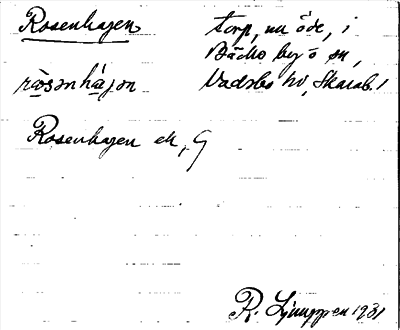 Rosenhagen torp, nu öde, i
Bäcks by o sn,
Vadsbo hd, Skarab. l
Rosenhagen ek, G
R. Ljunggren 1931